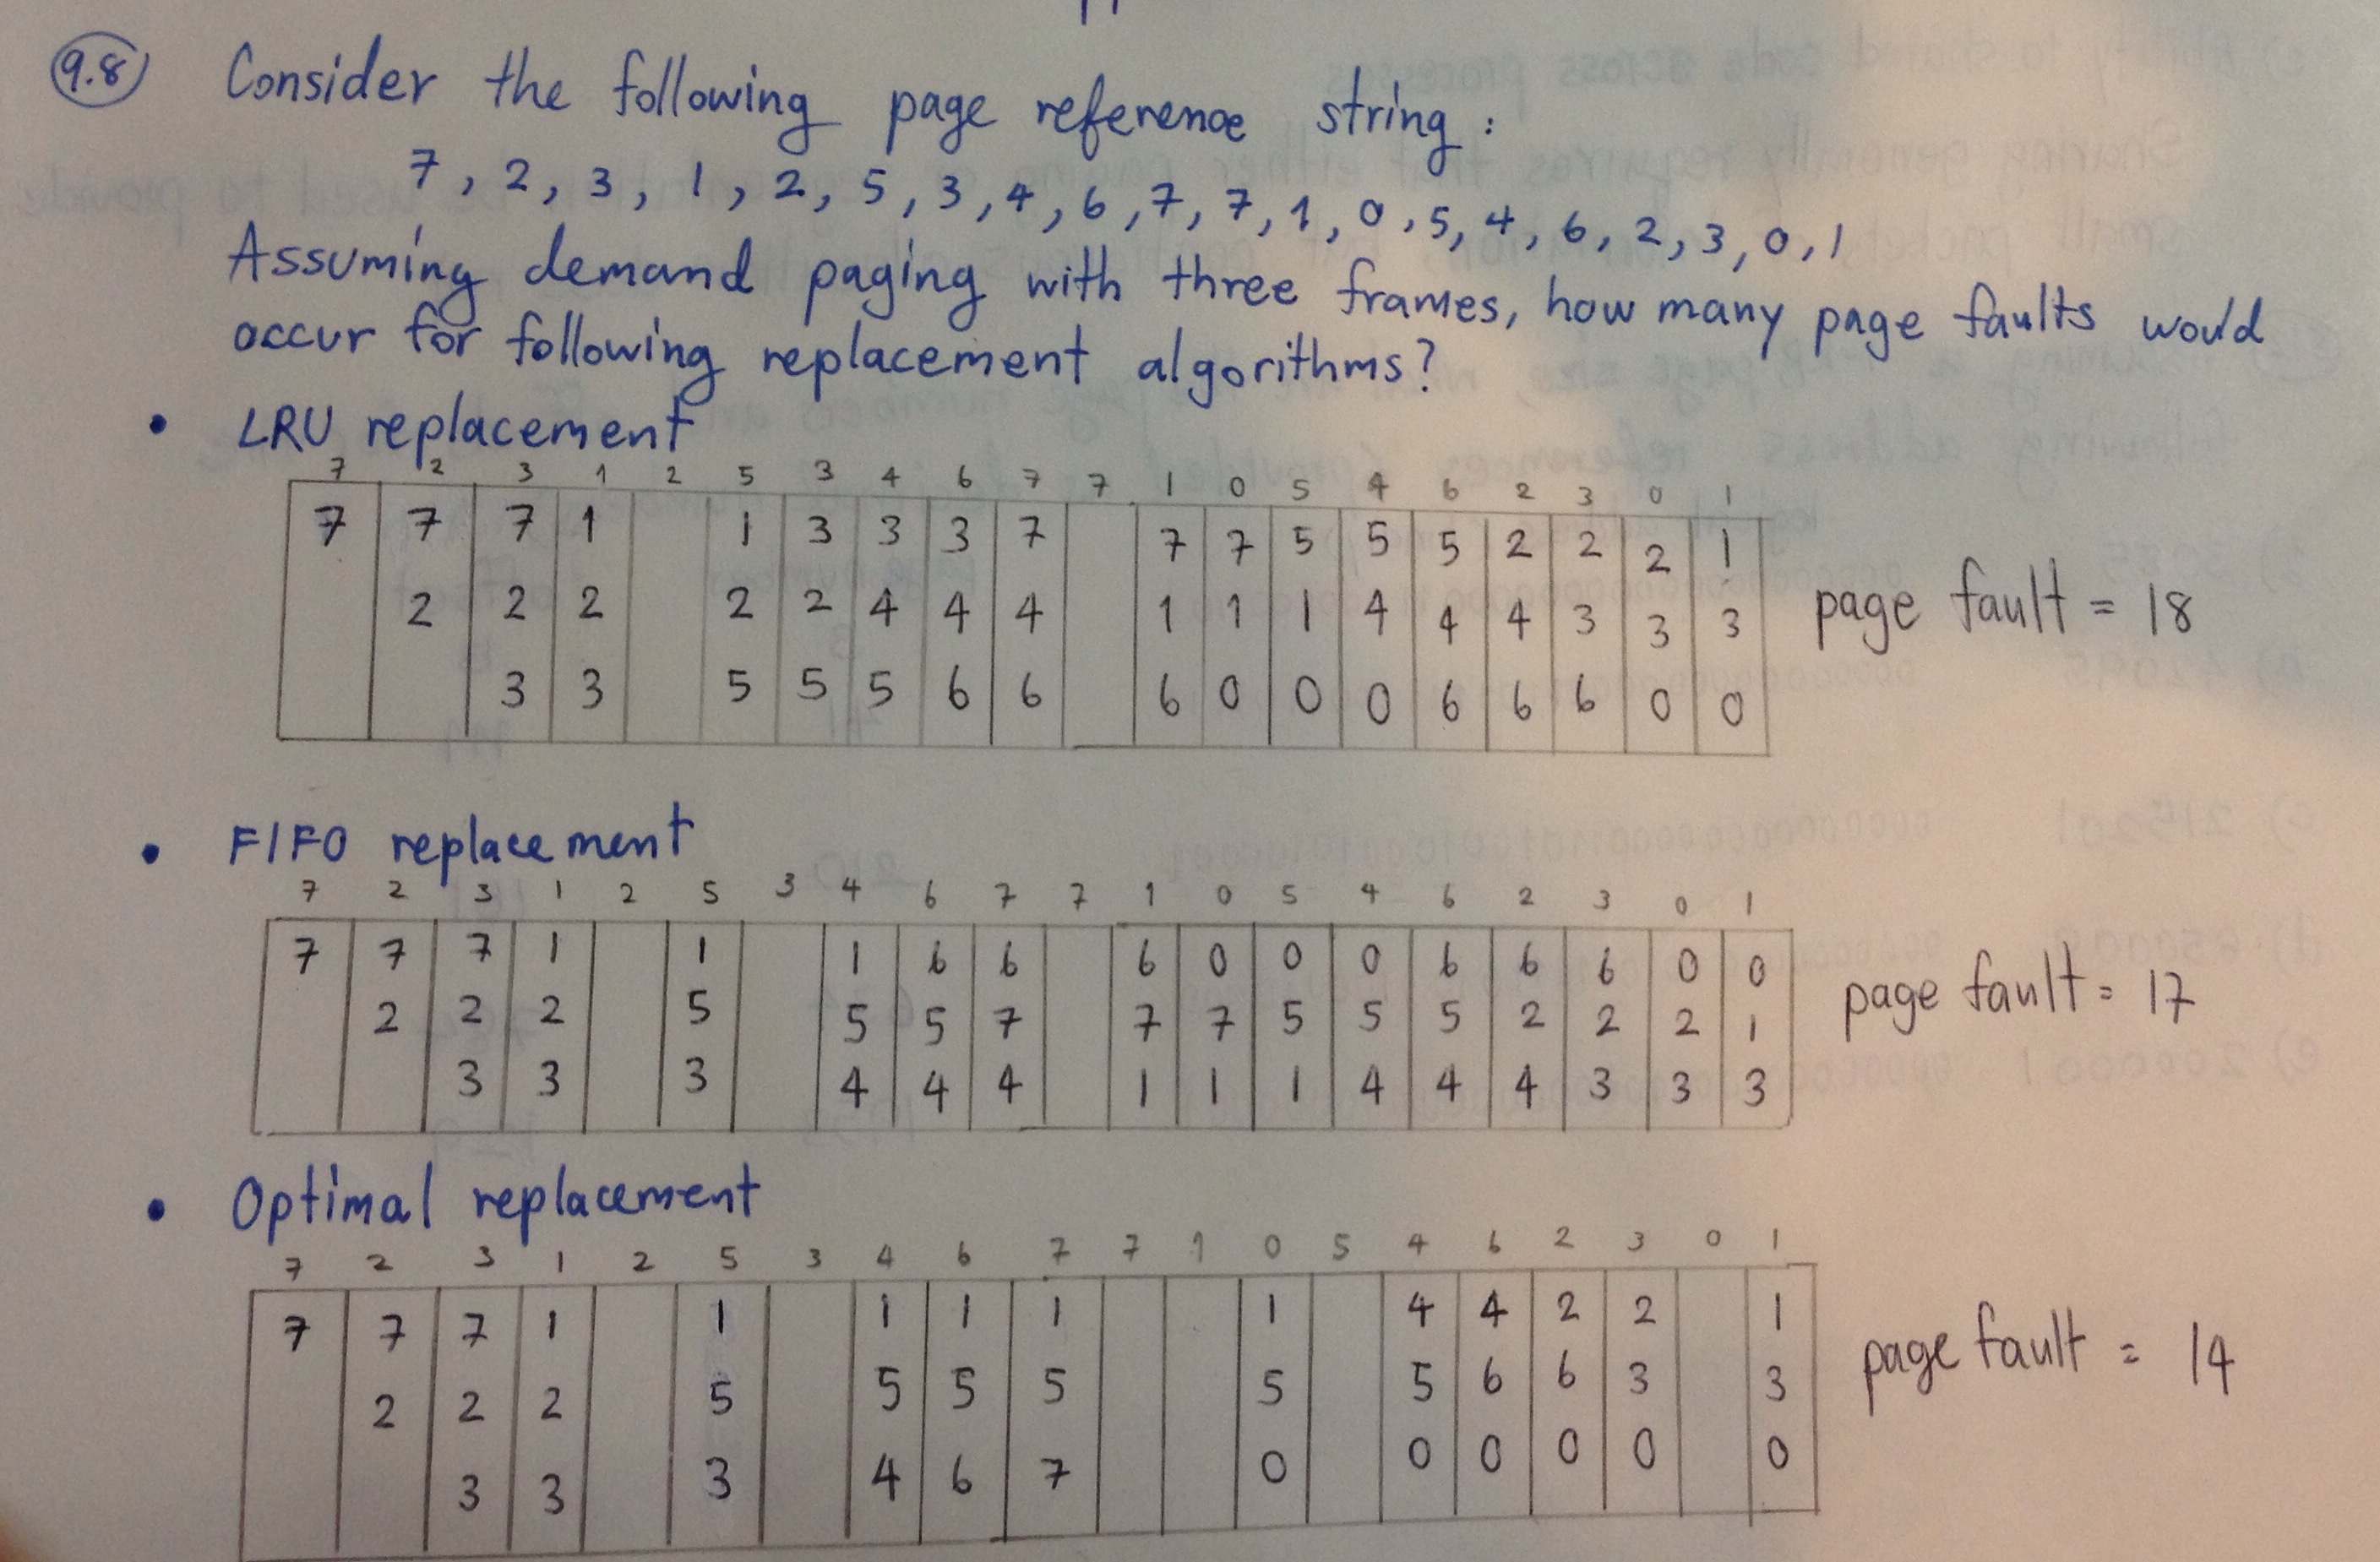 9.8 Consider the following page reference string :
7, 2, 3, 1, 2, 5, 3, 4, 6, 7, 7, 1, 0, 5, 4, 6, 2, 3, 0, 1
Assuming demand paging with three frames, how many page faults would
occur for following replacement algorithms?
• LRU replacement
7 2 3 1 2 5 3 4 6 7 7 1 0 5 4 6 2 3 0 1
7 7 7 1 1 3 3 3 7 7 7 5 5 5 2 2 2 1
2 2 2 2 2 4 4 4 1 1 1 4 4 4 3 3 3
3 3 5 5 5 6 6 6 0 0 0 6 6 6 0 0
page fault = 18
• FIFO replacement
7 2 3 1 2 5 3 4 6 7 7 1 0 5 4 6 2 3 0 1
7 7 7 1 1 1 6 6 6 0 0 0 6 6 6 0 0
2 2 2 5 5 5 7 7 7 5 5 5 2 2 2 1
3 3 3 4 4 4 1 1 1 4 4 4 3 3 3
page fault = 17
• Optimal replacement
7 2 3 1 2 5 3 4 6 7 7 1 0 5 4 6 2 3 0 1
7 7 7 1 1 1 1 1 1 4 4 2 2 1
2 2 2 5 5 5 5 5 5 6 6 3 3
3 3 3 4 6 7 0 0 0 0 0 0
page fault = 14